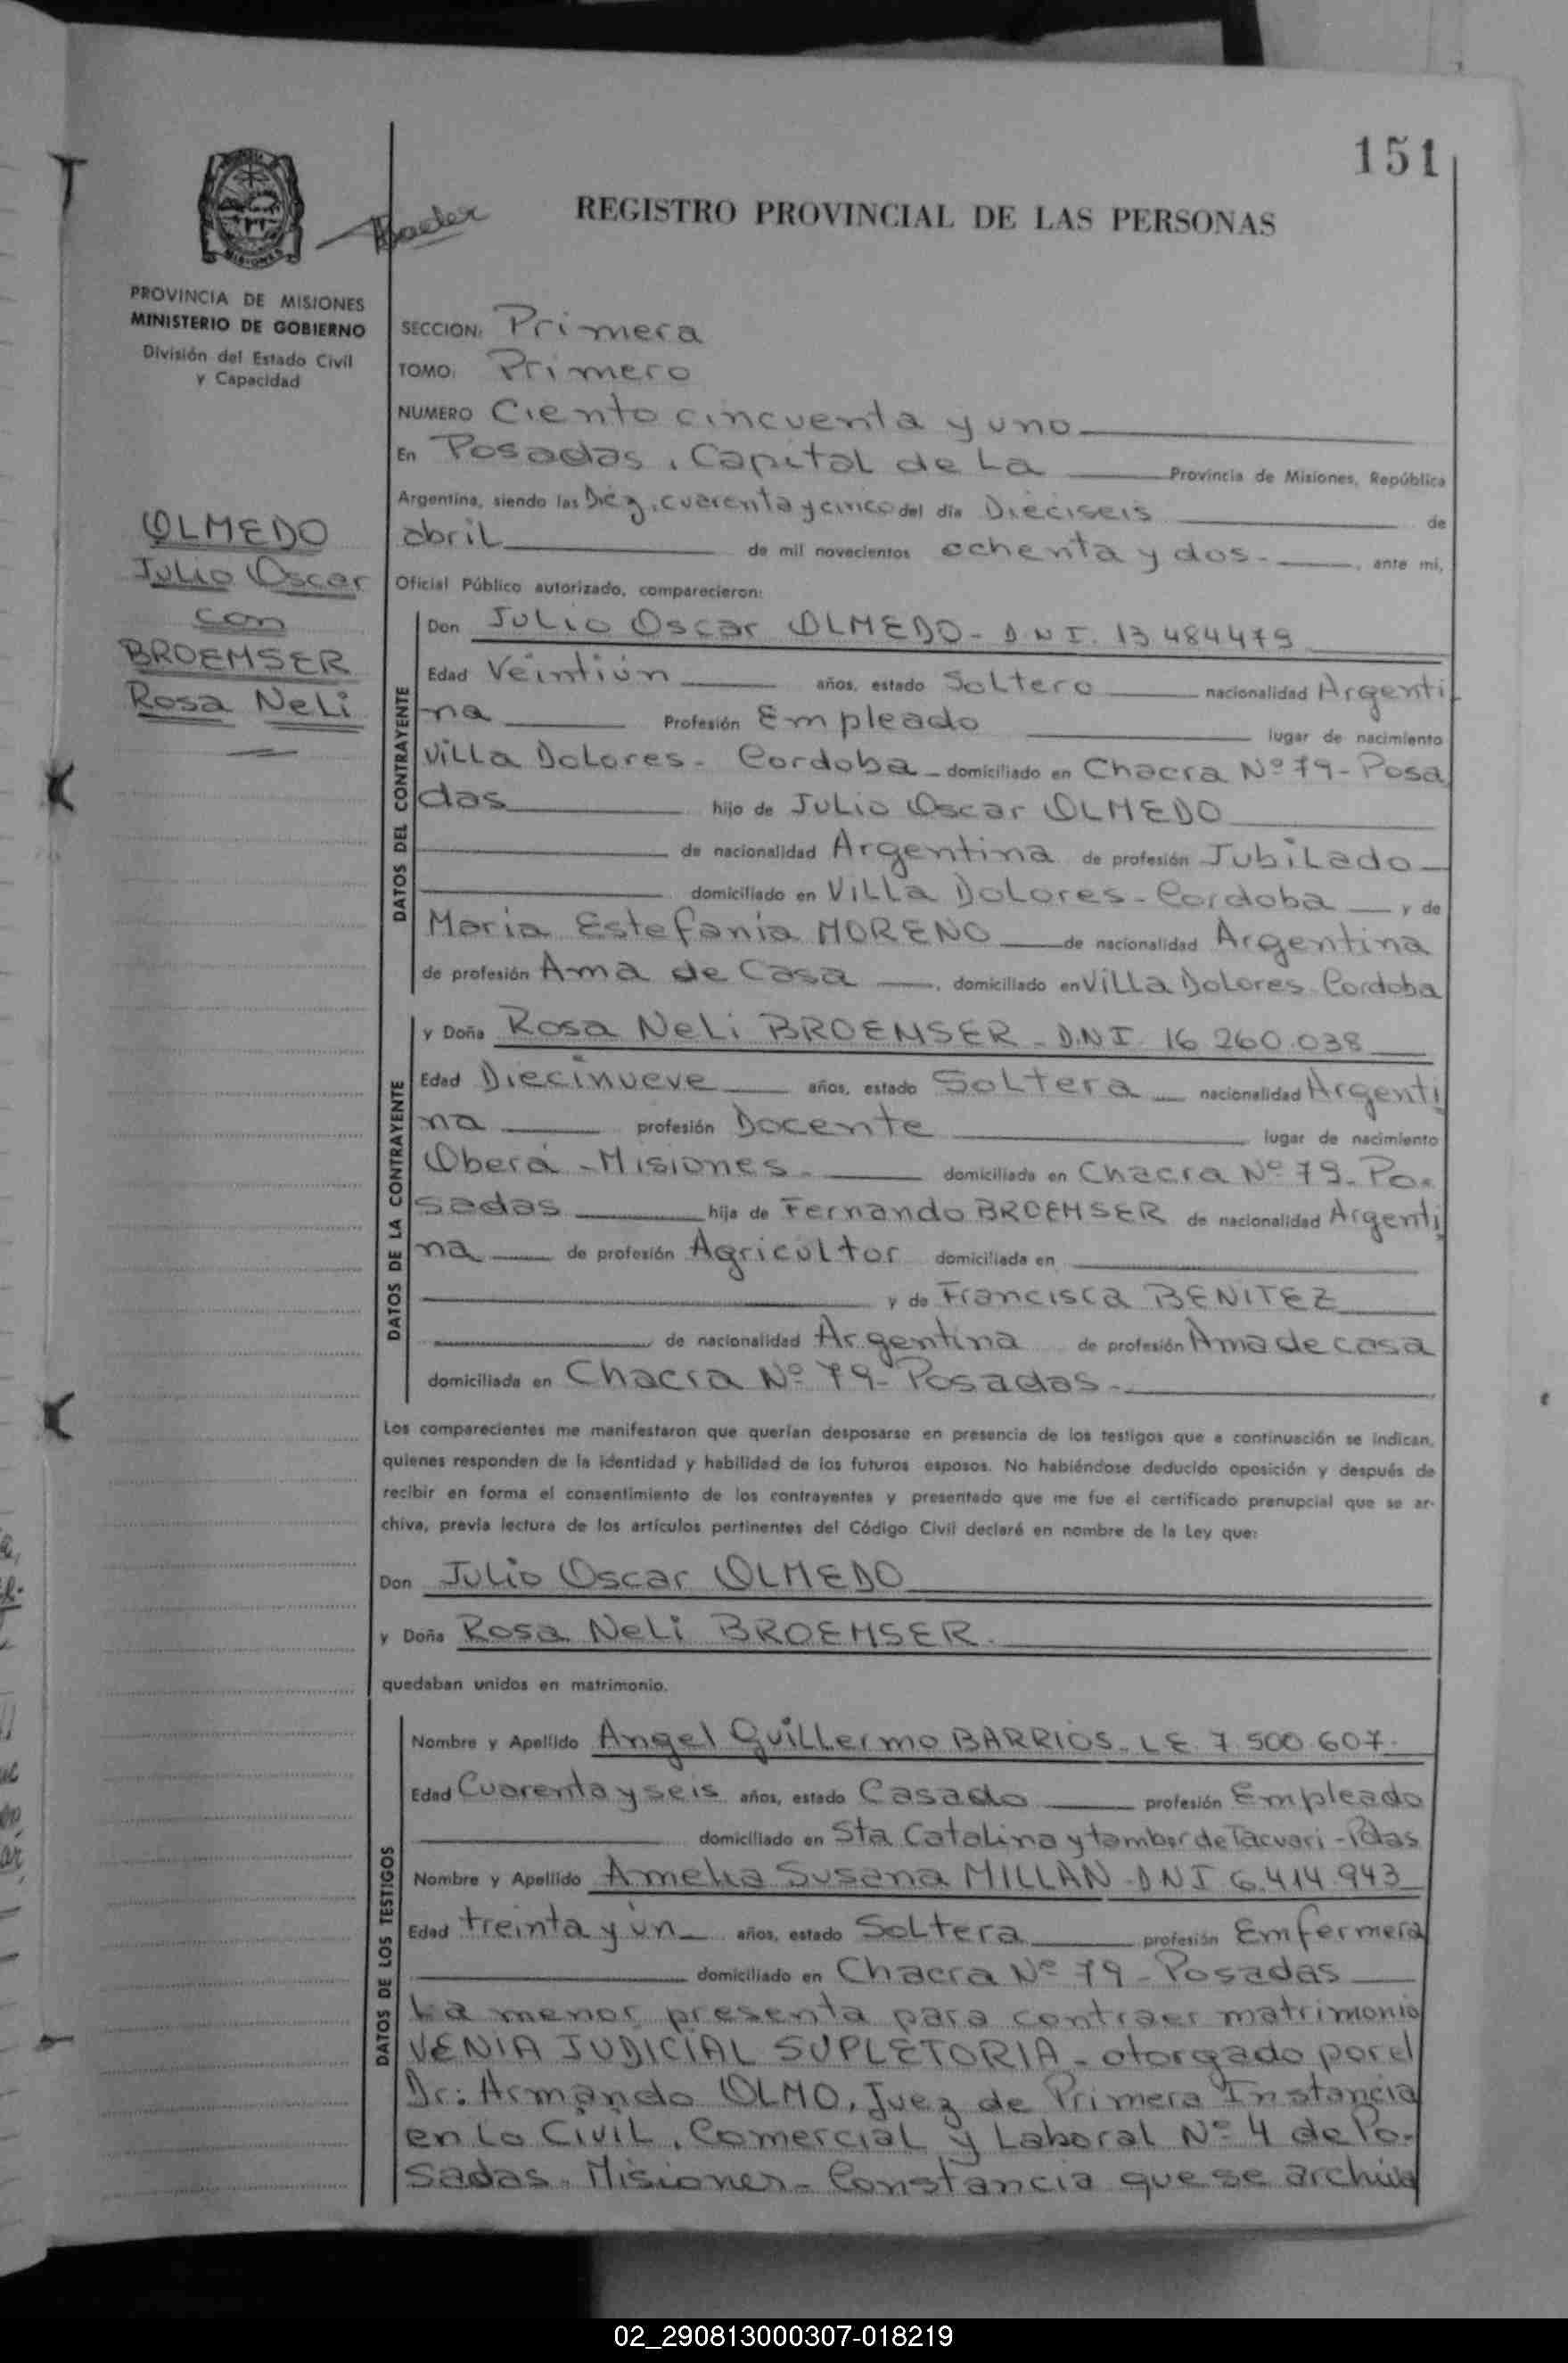 151
REGISTRO PROVINCIAL DE LAS PERSONAS
MISIONES
PROVINCIA DE MISIONES
MINISTERIO DE GOBIERNO
División del Estado Civil
y Capacidad
OLMEDO
Julio Oscar
con
BROEMSER
Rosa Neli
SECCION: Primera
TOMO: Primero
NUMERO Ciento cincuenta y uno
En Posadas, Capital de La Provincia de Misiones, República
Argentina, siendo las Diez, cuarenta y cinco del día Dieciseis de
abril de mil novecientos ochenta y dos.-, ante mi,
Oficial Público autorizado, comparecieron:
DATOS DEL CONTRAYENTE
Don Julio Oscar OLMEDO- D N I. 13 484479
Edad Veintiún años, estado Soltero nacionalidad Argenti
na Profesión Empleado lugar de nacimiento
Villa Dolores- Cordoba- domiciliado en Chacra Nº 79- Posa
das hijo de Julio Oscar OLMEDO
de nacionalidad Argentina de profesión Jubilado
domiciliado en Villa Dolores- Cordoba y de
Maria Estefania MORENO de nacionalidad Argentina
de profesión Ama de Casa, domiciliado en Villa Dolores-Cordoba
DATOS DE LA CONTRAYENTE
y Doña Rosa Neli BROEMSER- D.N.I. 16 260.038
Edad Diecinueve años, estado Soltera nacionalidad Argenti
na profesión Docente lugar de nacimiento
Oberá -Misiones- domiciliada en Chacra Nº 79- Po-
sadas hija de Fernando BROEMSER de nacionalidad Argenti
na de profesión Agricultor domiciliada en
y de Francisca BENITEZ
de nacionalidad Argentina de profesión Ama de casa
domiciliada en Chacra Nº 79- Posadas-
Los comparecientes me manifestaron que querían desposarse en presencia de los testigos que a continuación se indican,
quienes responden de la identidad y habilidad de los futuros esposos. No habiéndose deducido oposición y después de
recibir en forma el consentimiento de los contrayentes y presentado que me fue el certificado prenupcial que se ar-
chiva, previa lectura de los artículos pertinentes del Código Civil declaré en nombre de la Ley que:
Don Julio Oscar OLMEDO
y Doña Rosa Neli BROEMSER.
quedaban unidos en matrimonio.
DATOS DE LOS TESTIGOS
Nombre y Apellido Angel Guillermo BARRIOS- L E 7 500 607.
Edad Cuarenta y seis años, estado Casado profesión Empleado
domiciliado en Sta Catalina y tambor de Tacuari - Pdas
Nombre y Apellido Amelia Susana MILLAN -D N I 6.414.943
Edad treinta y ún años, estado Soltera profesión Emfermera
domiciliado en Chacra Nº 79 - Posadas
La menor presenta para contraer matrimonio
VENIA JUDICIAL SUPLETORIA- otorgado por el
Dr: Armando OLMO, Juez de Primera Instancia
en Lo Civil, Comercial y Laboral Nº 4 de Po-
sadas- Misiones- Constancia que se archiva
02_290813000307-018219